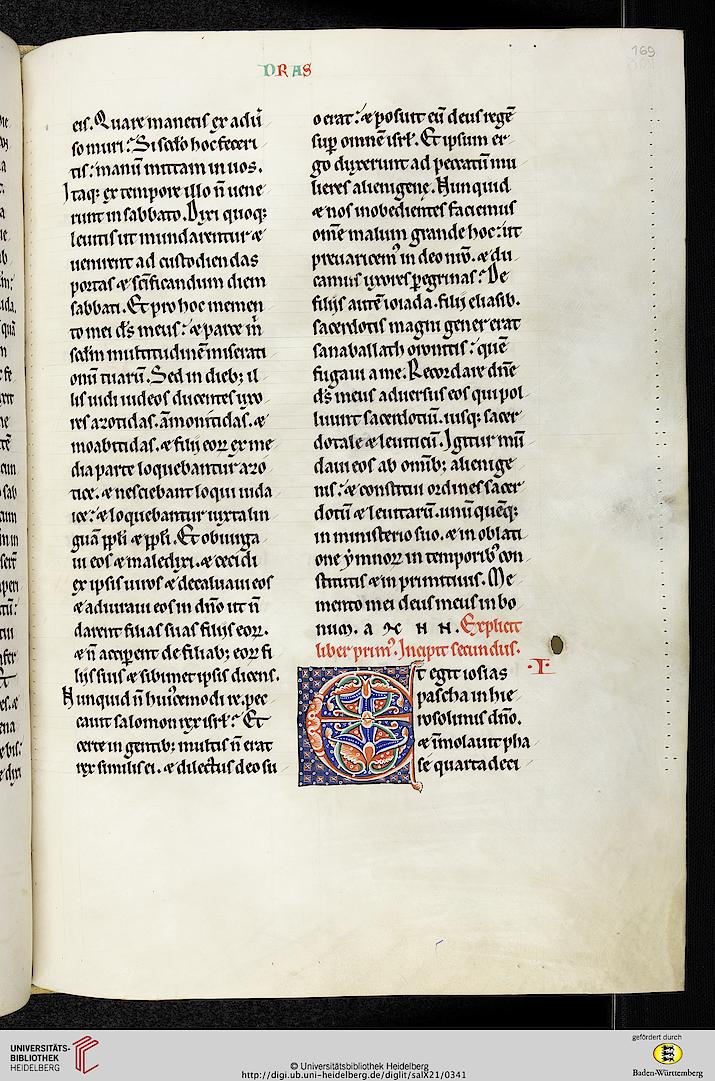 DRAS
169
eis. Quare manetis ex adū
so muri? Si sc̄do hoc feceri
tis: manū mittam in uos.
Itaq; ex tempore illo n̄ uene
runt in sabbato. Dixi quoq;
leuitis ut mundarentur &
uenirent ad custodiendas
portas & sc̄ificandum diem
sabbati. Et pro hoc memen
to mei d̄s meus: & parce m̄
sc̄dm multitudinē miserati
onū tuarū. Sed in dieb; il
lis uidi iudeos ducentes uxo
res azotidas. āmonitidas. &
moabitidas. & filij eoꝝ ex me
dia parte loquebantur azo
tice. & nesciebant loqui iuda
ice: & loquebantur iuxta lin
guā ppli & ppli. Et obiurga
ui eos & maledixi. & cecidi
ex ipsis uiros & decaluaui eos
& adiuraui eos in dn̄o ut n̄
darent filias suas filijs eoꝝ.
& n̄ acciperent de filiab; eoꝝ fi
lijs suis & sibimet ipsis dicens.
Nunquid n̄ hui'cemodi re. pec
cauit salomon rex isrl̄? Et
certe in gentib; multis n̄ erat
rex similis ei. & dilectus deo su
o erat: & posuit eū deus regē
sup omnē isrl̄. Et ipsum er
go duxerunt ad peccatū mu
lieres alienigene. Nunquid
& nos inobedientes faciemus
om̄e malum grande hoc: ut
preuaricem' in deo nr̄o. & du
camus uxores peregrinas? De
filijs autē ioiada. filij eliasib.
sacerdotis magni gener erat
sanaballath oronitis: quē
fugaui a me. Recordare dn̄e
d̄s meus aduersus eos qui pol
luunt sacerdotiū. iusq; sacer
dotale & leuiticū. Igitur mū
daui eos ab om̄ib; alienige
nis: & constitui ordines sacer
dotū & leuitarū. unū quēq;
in ministerio suo. & in oblati
one ymnoꝝ in temporib' con
stitutis & in primitiuis. Me
mento mei deus meus in bo
num. Explicit
liber prim'. Incipit secundus.
Et egit iosias .I
pascha in hie
rosolimis dn̄o.
& īmolauit pha
se quarta deci
UNIVERSITÄTS-
BIBLIOTHEK
HEIDELBERG
© Universitätsbibliothek Heidelberg
http://digi.ub.uni-heidelberg.de/diglit/salX21/0341
gefördert durch
Baden-Württemberg